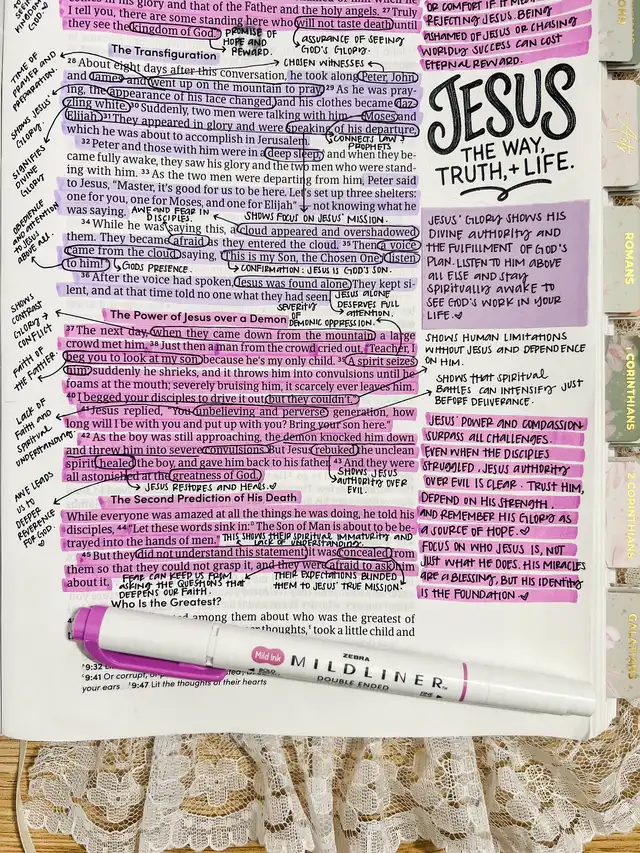 in his glory and that of the Father and the holy angels. 27 Truly
I tell you, there are some standing here who will not taste death until
they see the kingdom of God."
PROMISE OF
HOPE AND
REWARD.
ASSURANCE OF SEEING
GOD'S GLORY.
The Transfiguration
CHOSEN WITNESSES
28 About eight days after this conversation, he took along Peter, John
and James and went up on the mountain to pray. 29 As he was pray-
ing, the appearance of his face changed, and his clothes became daz-
zling white. 30 Suddenly, two men were talking with him—Moses and
Elijah. 31 They appeared in glory and were speaking of his departure,
which he was about to accomplish in Jerusalem.
CONNECTS LAW &
PROPHETS
32 Peter and those with him were in a deep sleep, and when they be-
came fully awake, they saw his glory and the two men who were stand-
ing with him. 33 As the two men were departing from him, Peter said
to Jesus, "Master, it's good for us to be here. Let us set up three shelters:
one for you, one for Moses, and one for Elijah"—not knowing what he
was saying.
AWE AND FEAR IN
DISCIPLES.
SHOWS FOCUS ON JESUS' MISSION.
34 While he was saying this, a cloud appeared and overshadowed
them. They became afraid as they entered the cloud. 35 Then a voice
came from the cloud, saying, "This is my Son, the Chosen One; listen
to him!"
GODS PRESENCE.
CONFIRMATION: JESUS IS GOD'S SON.
36 After the voice had spoken, Jesus was found alone. They kept si-
lent, and at that time told no one what they had seen.
JESUS ALONE
DESERVES FULL
ATTENTION.
SEVERITY
OF
DEMONIC OPPRESSION.
The Power of Jesus over a Demon
37 The next day, when they came down from the mountain, a large
crowd met him. 38 Just then a man from the crowd cried out, "Teacher, I
beg you to look at my son, because he's my only child. 39 A spirit seizes
him; suddenly he shrieks, and it throws him into convulsions until he
foams at the mouth; severely bruising him, it scarcely ever leaves him.
40 I begged your disciples to drive it out, but they couldn't."
41 Jesus replied, "You unbelieving and perverse generation, how
long will I be with you and put up with you? Bring your son here."
42 As the boy was still approaching, the demon knocked him down
and threw him into severe convulsions. But Jesus rebuked the unclean
spirit, healed the boy, and gave him back to his father. 43 And they were
all astonished at the greatness of God.
JESUS RESTORES AND HEALS
SHOWS JESUS'
AUTHORITY OVER
EVIL.
The Second Prediction of His Death
While everyone was amazed at all the things he was doing, he told his
disciples, 44 "Let these words sink in: The Son of Man is about to be be-
trayed into the hands of men."
THIS SHOWS THEIR SPIRITUAL IMMATURITY AND
LACK OF UNDERSTANDING.
45 But they did not understand this statement; it was concealed from
them so that they could not grasp it, and they were afraid to ask him
about it.
FEAR CAN KEEP US FROM
ASKING THE QUESTIONS THAT
DEEPENS OUR FAITH.
THEIR EXPECTATIONS BLINDED
THEM TO JESUS' TRUE MISSION.
Who Is the Greatest?
among them about who was the greatest of
thoughts, took a little child and
9:32
9:41 Or corrupt, or
your ears 9:47 Lit the thoughts of their hearts
TIME OF
PRAYER AND
PREPARATION
SHOWS JESUS'
GLORY.
SIGNIFIES
DIVINE
GLORY
OBEDIENCE
AND ATTENTION
TO JESUS
ABOVE ALL.
SHOWS
CONTRAST
GLORY →
CONFLICT
FAITH OF
THE FATHER.
LACK OF
FAITH AND
SPIRITUAL
UNDERSTANDING
AWE LEADS
US TO
DEEPER
REVERENCE
FOR GOD.
OR COMFORT IF IT MEANS
REJECTING JESUS. BEING
ASHAMED OF JESUS OR CHASING
WORLDLY SUCCESS CAN COST
ETERNAL REWARD.
JESUS
THE WAY,
TRUTH, + LIFE.
JESUS' GLORY SHOWS HIS
DIVINE AUTHORITY AND
THE FULFILLMENT OF GOD'S
PLAN. LISTEN TO HIM ABOVE
ALL ELSE AND STAY
SPIRITUALLY AWAKE TO
SEE GOD'S WORK IN YOUR
LIFE.
SHOWS HUMAN LIMITATIONS
WITHOUT JESUS AND DEPENDENCE
ON HIM.
SHOWS THAT SPIRITUAL
BATTLES CAN INTENSIFY JUST
BEFORE DELIVERANCE.
JESUS' POWER AND COMPASSION
SURPASS ALL CHALLENGES.
EVEN WHEN THE DISCIPLES
STRUGGLED. JESUS AUTHORITY
OVER EVIL IS CLEAR. TRUST HIM,
DEPEND ON HIS STRENGTH,
AND REMEMBER HIS GLORY AS
A SOURCE OF HOPE.
FOCUS ON WHO JESUS IS, NOT
JUST WHAT HE DOES. HIS MIRACLES
ARE A BLESSING, BUT HIS IDENTITY
IS THE FOUNDATION
Mild Ink
ZEBRA
MILDLINER™
DOUBLE ENDED
ROMANS
1 CORINTHIANS
2 CORINTHIANS
GALATIANS